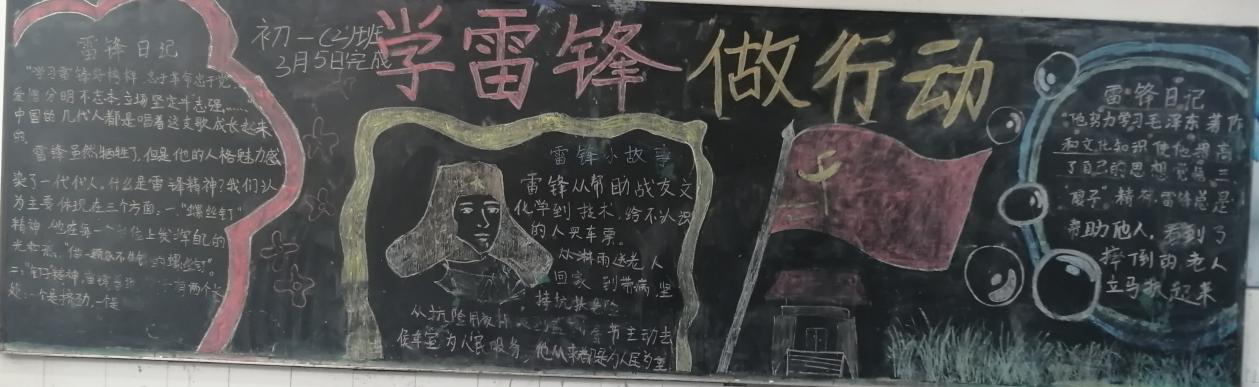 学雷锋 做行动
初一(2)班
3月5日完成
雷锋日记
"学习雷锋好榜样,忠于革命忠于党
爱憎分明不忘本,立场坚定斗志强……
中国的几代人都是唱着这支歌成长起来
的。
雷锋虽然牺牲了,但是他的人格魅力感
染了一代代人。什么是雷锋精神?我们认
为主要体现在三个方面:一、"螺丝钉"
精神,他在每一个岗位上发挥自己的
光和热,"做一颗永不生锈的螺丝钉"。
二:"钉子精神,
处:一个是挤劲,一个是
雷锋小故事
雷锋从帮助战友文
化学到技术,给不认识
的人买车票。
从淋雨送老人
回家,到带病坚
持抗洪抢险
从抗险
节主动去
侯车室为人民服务,他从来都是为人民为重
雷锋日记
"他努力学习毛泽东著作
和文化知识使他提高
了自己的思想觉悟,三:
"傻子"精神,雷锋总是
亲助他人,看到了
摔倒的老人
立马扶起来